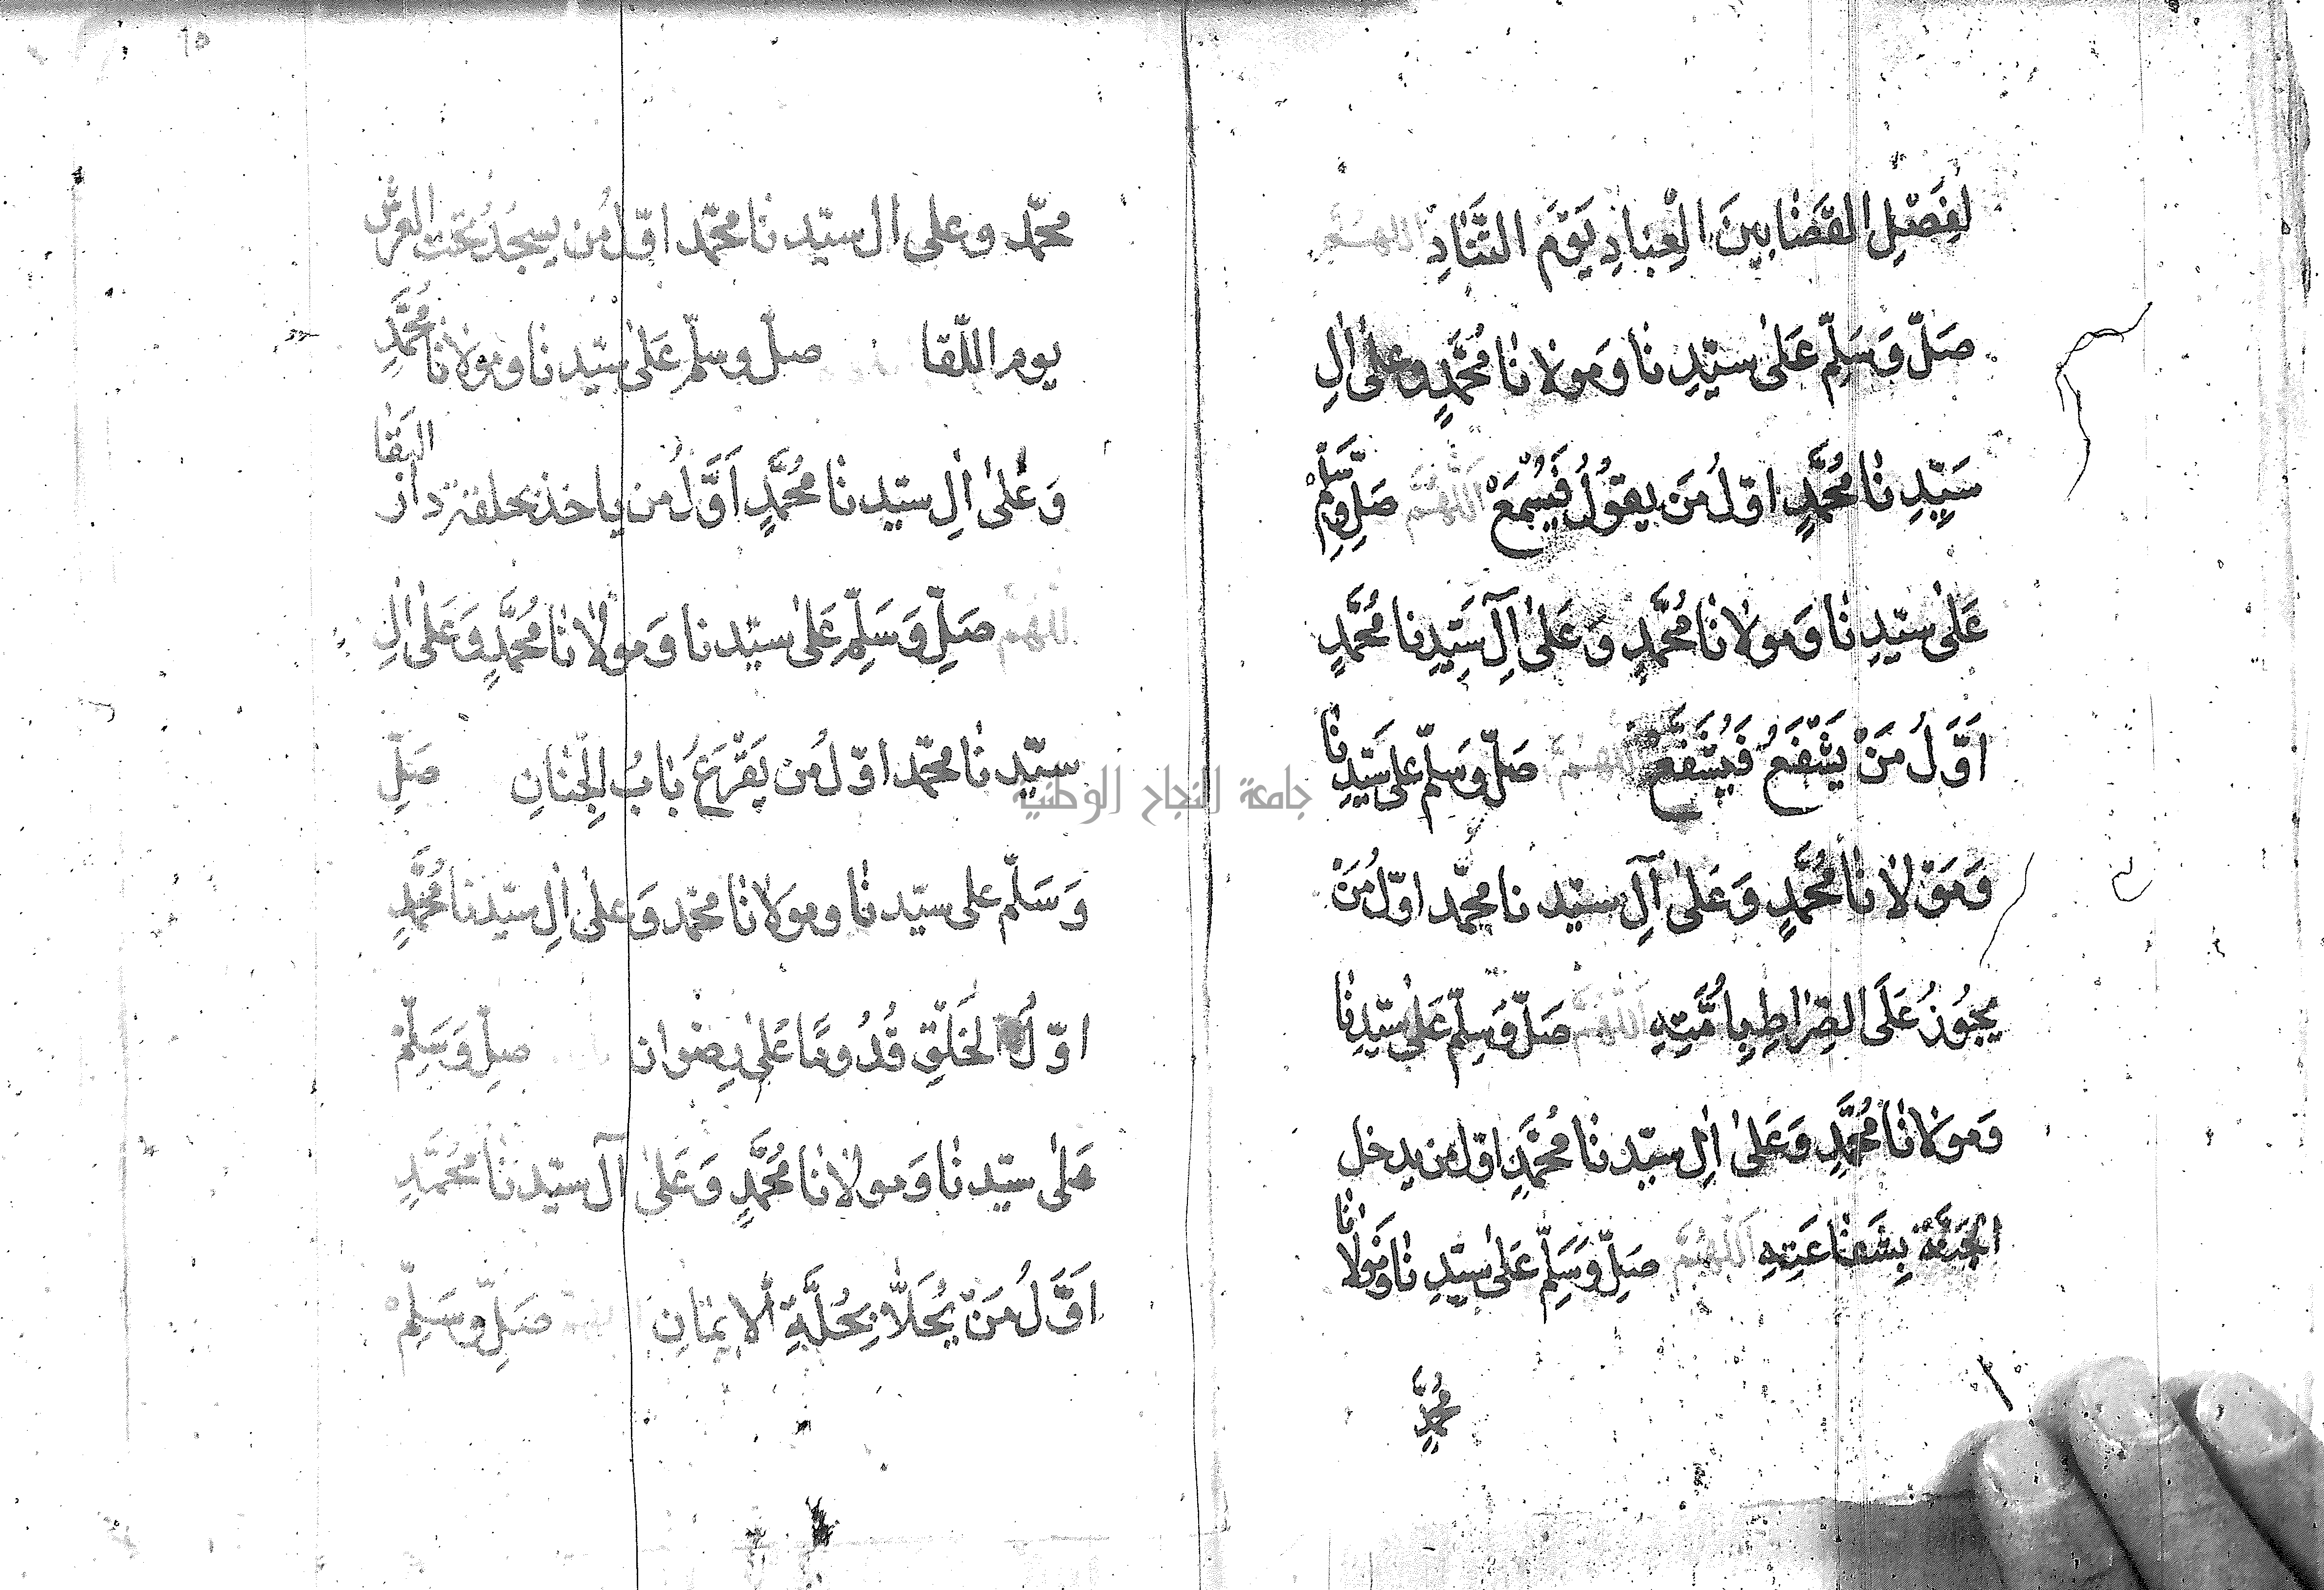 لِفَصْلِ القَضَا بينَ العِبَادِ يَوْمَ التَّنَادِ اللهم
صَلّ وَسَلِّمْ عَلى سيّدِنا وَمولانا مُحَمَّدٍ وعلى اٰلِ
سَيِّدِنا مُحَمَّدٍ اوّلُ مَن يقوُلُ فَيُسْمَعْ اَللّهُمَّ صَلِّ وَسَلِّمْ
عَلىٰ سيّدِنا وَمولانا مُحَمَّدٍ وَعَلىٰ آلِ سَيِّدِنا مُحَمَّدٍ
اَوَّلُ مَنْ يَشْفَعُ فَيُشَفَّعْ اللهمَّ صَلّ وَسَلّم على سَيّدِنا
وَمَوْلانا مُحَمَّدٍ وَعَلىٰ آلِ سيّدنا محمّد اوّلُ مَنْ
يجوُزُ عَلَى الصِّرَاطِ بِاُمَّتِهِ اَللّهُمَّ صَلّ وَسَلِّمْ عَلىٰ سيّدِنا
وَمولانا مُحَمَّدٍ وَعَلىٰ اٰلِ سيّدنا مُحَمَّدٍ اوّل من يدخل
الجَنَّةَ بِشَفَاعَتِهِ اَللّهُمَّ صَلِّ وَسَلِّمْ عَلىٰ سيّدِنا وَمَولانا
مُحَمَّدٍ
٦٥
محمّد وعلى ال سيّدنا محمّد اوّل مُن يسجُدُ تحت العرش
يوم اللّقا صلّ وسلّم عَلىٰ سيّدنا ومولانا مُحَمَّدِ
وَعَلىٰ اٰلِ سيّدِنا مُحَمَّدٍ اَوَّلُ من ياخذ بحلقة دار البَقا
اللهُمَّ صَلِّ وَسَلِّمْ عَلىٰ سيّدنا وَمولانا مُحَمَّدٍ وَعَلىٰ اٰلِ
سيّدنا محمّد اوّلُ من يَقْرَعُ بَابُ الجِنَانِ صَلِّ
وَسَلّم على سيّدنا ومولانا محمّد وَعلىٰ اٰلِ سيّدنا مُحَمَّدٍ
اوّلُ الخَلْقِ قُدُومًا عَلى رِضْوان صلِّ وَسَلِّمْ
عَلىٰ سيّدنا وَمولانا مُحَمَّدٍ وَعَلىٰ آل سيّدنا مُحَمَّدٍ
اَوَّلُ مَنْ يُحَلاَّ بِحُلَّةِ الايمَانِ اللهم صَلِّ وسَلِّمْ
جامعة النجاح الوطنية